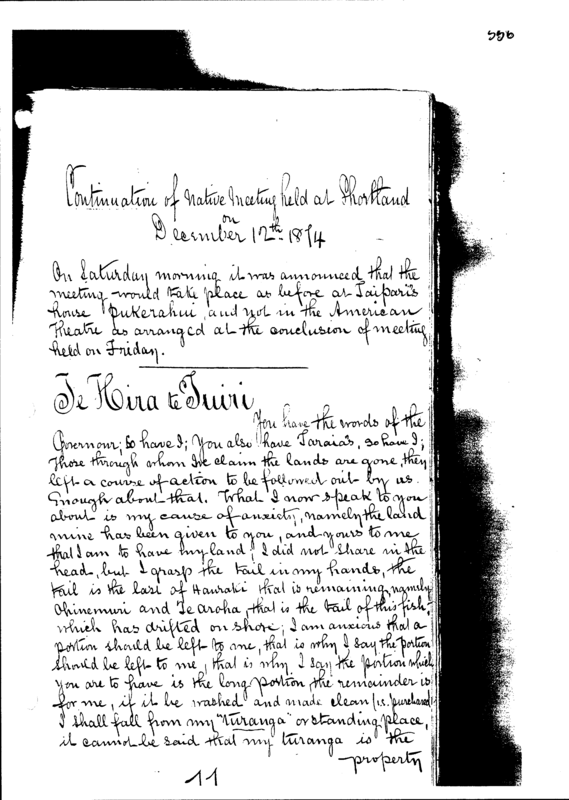 556
Continuation of Native Meeting held at Shortland
on
December 12th 1874
On Saturday morning it was announced that the
meeting would take place as before at Taipari's
house Pukerahui, and not in the American
Theatre as arranged at the conclusion of meeting
held on Friday.
Te Hira te Tuiri
You have the words of the
Governour; so have I; You also have Taraia's, so have I;
Those through whom we claim the lands are gone, they
left a course of action to be followed out by us.
Enough about that. What I now speak to you
about is my cause of anxiety, namely the land
mine has been given to you, and yours to me
that I am to have my land; I did not share in the
head, but I grasp the tail in my hands, the
tail is the last of Hauraki that is remaining, namely
Ohinemuri and Te Aroha, that is the tail of this fish
which has drifted on shore; I am anxious that a
portion should be left to me, that is why I say the portion
should be left to me, that is why I say the portion which
you are to have is the long portion, the remainder is
for me, if it be washed and made clean (i.e. purchased)
I shall fall from my "turanga" or standing place,
it cannot be said that my turanga is the
property
11